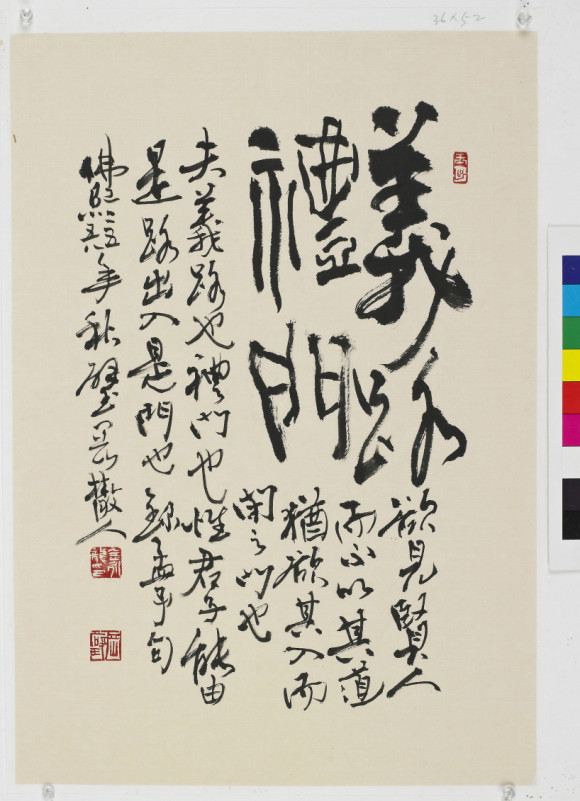 36×52
義路
禮門
欲見賢人
而不以其道
猶欲其入而
閉之門也
夫義路也禮門也惟君子能由
是路出入是門也錄孟子句
佛年秋人